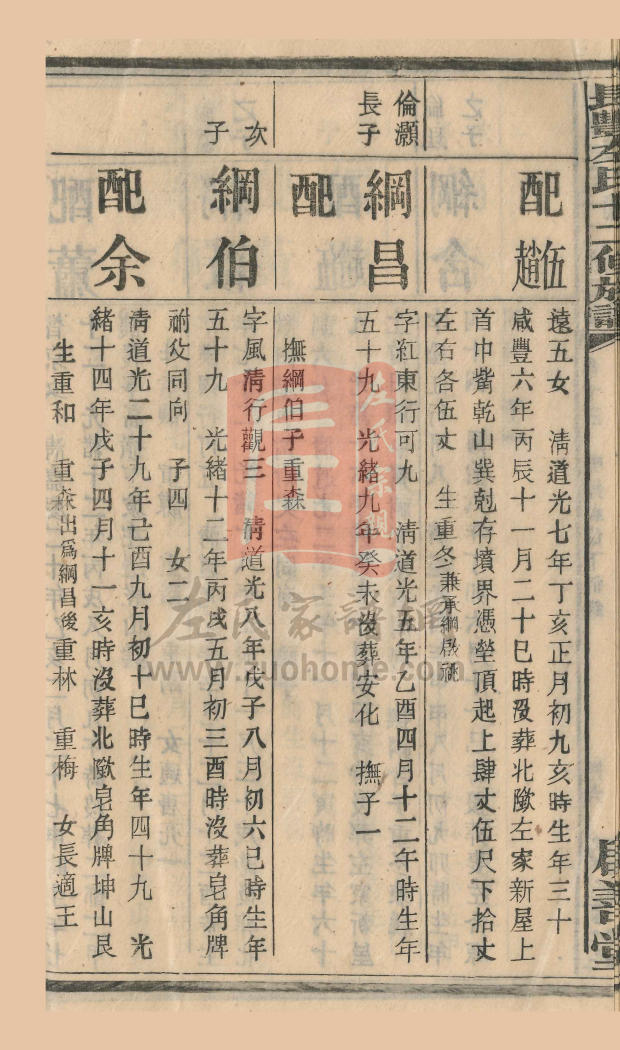 長豐左氏十二修族譜
配 伍趙
遠五女 清道光七年丁亥正月初九亥時生年三十
咸豐六年丙辰十一月二十巳時没葬北歐左家新屋上
首中嘴乾山巽剋存墳界憑塋頂起上肆丈伍尺下拾丈
左右各伍丈 生重冬兼承綱啟祧
倫灝長子
綱昌
字紅東行可九 清道光五年乙酉四月十二午時生年
五十九 光緒九年癸未没葬安化 撫子一
配
撫綱伯子重森
次子
綱伯
字風清行觀三 清道光八年戊子八月初六巳時生年
五十九 光緒十二年丙戌五月初三酉時没葬皂角牌
祔父同向 子四 女二
配余
清道光二十九年己酉九月初十巳時生年四十九 光
緒十四年戊子四月十一亥時没葬北歐皂角牌坤山艮
生重和 重森出爲綱昌後重林 重梅 女長適王
左氏宗親
左氏家譜網
www.zuohome.com